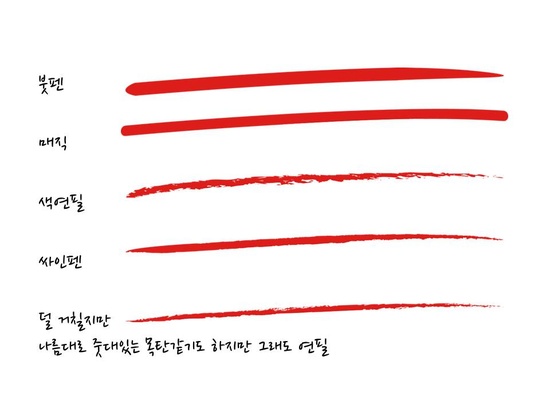 붓펜
매직
색연필
싸인펜
덜 거칠지만
나름대로 줏대있는 목탄같기도 하지만 그래도 연필